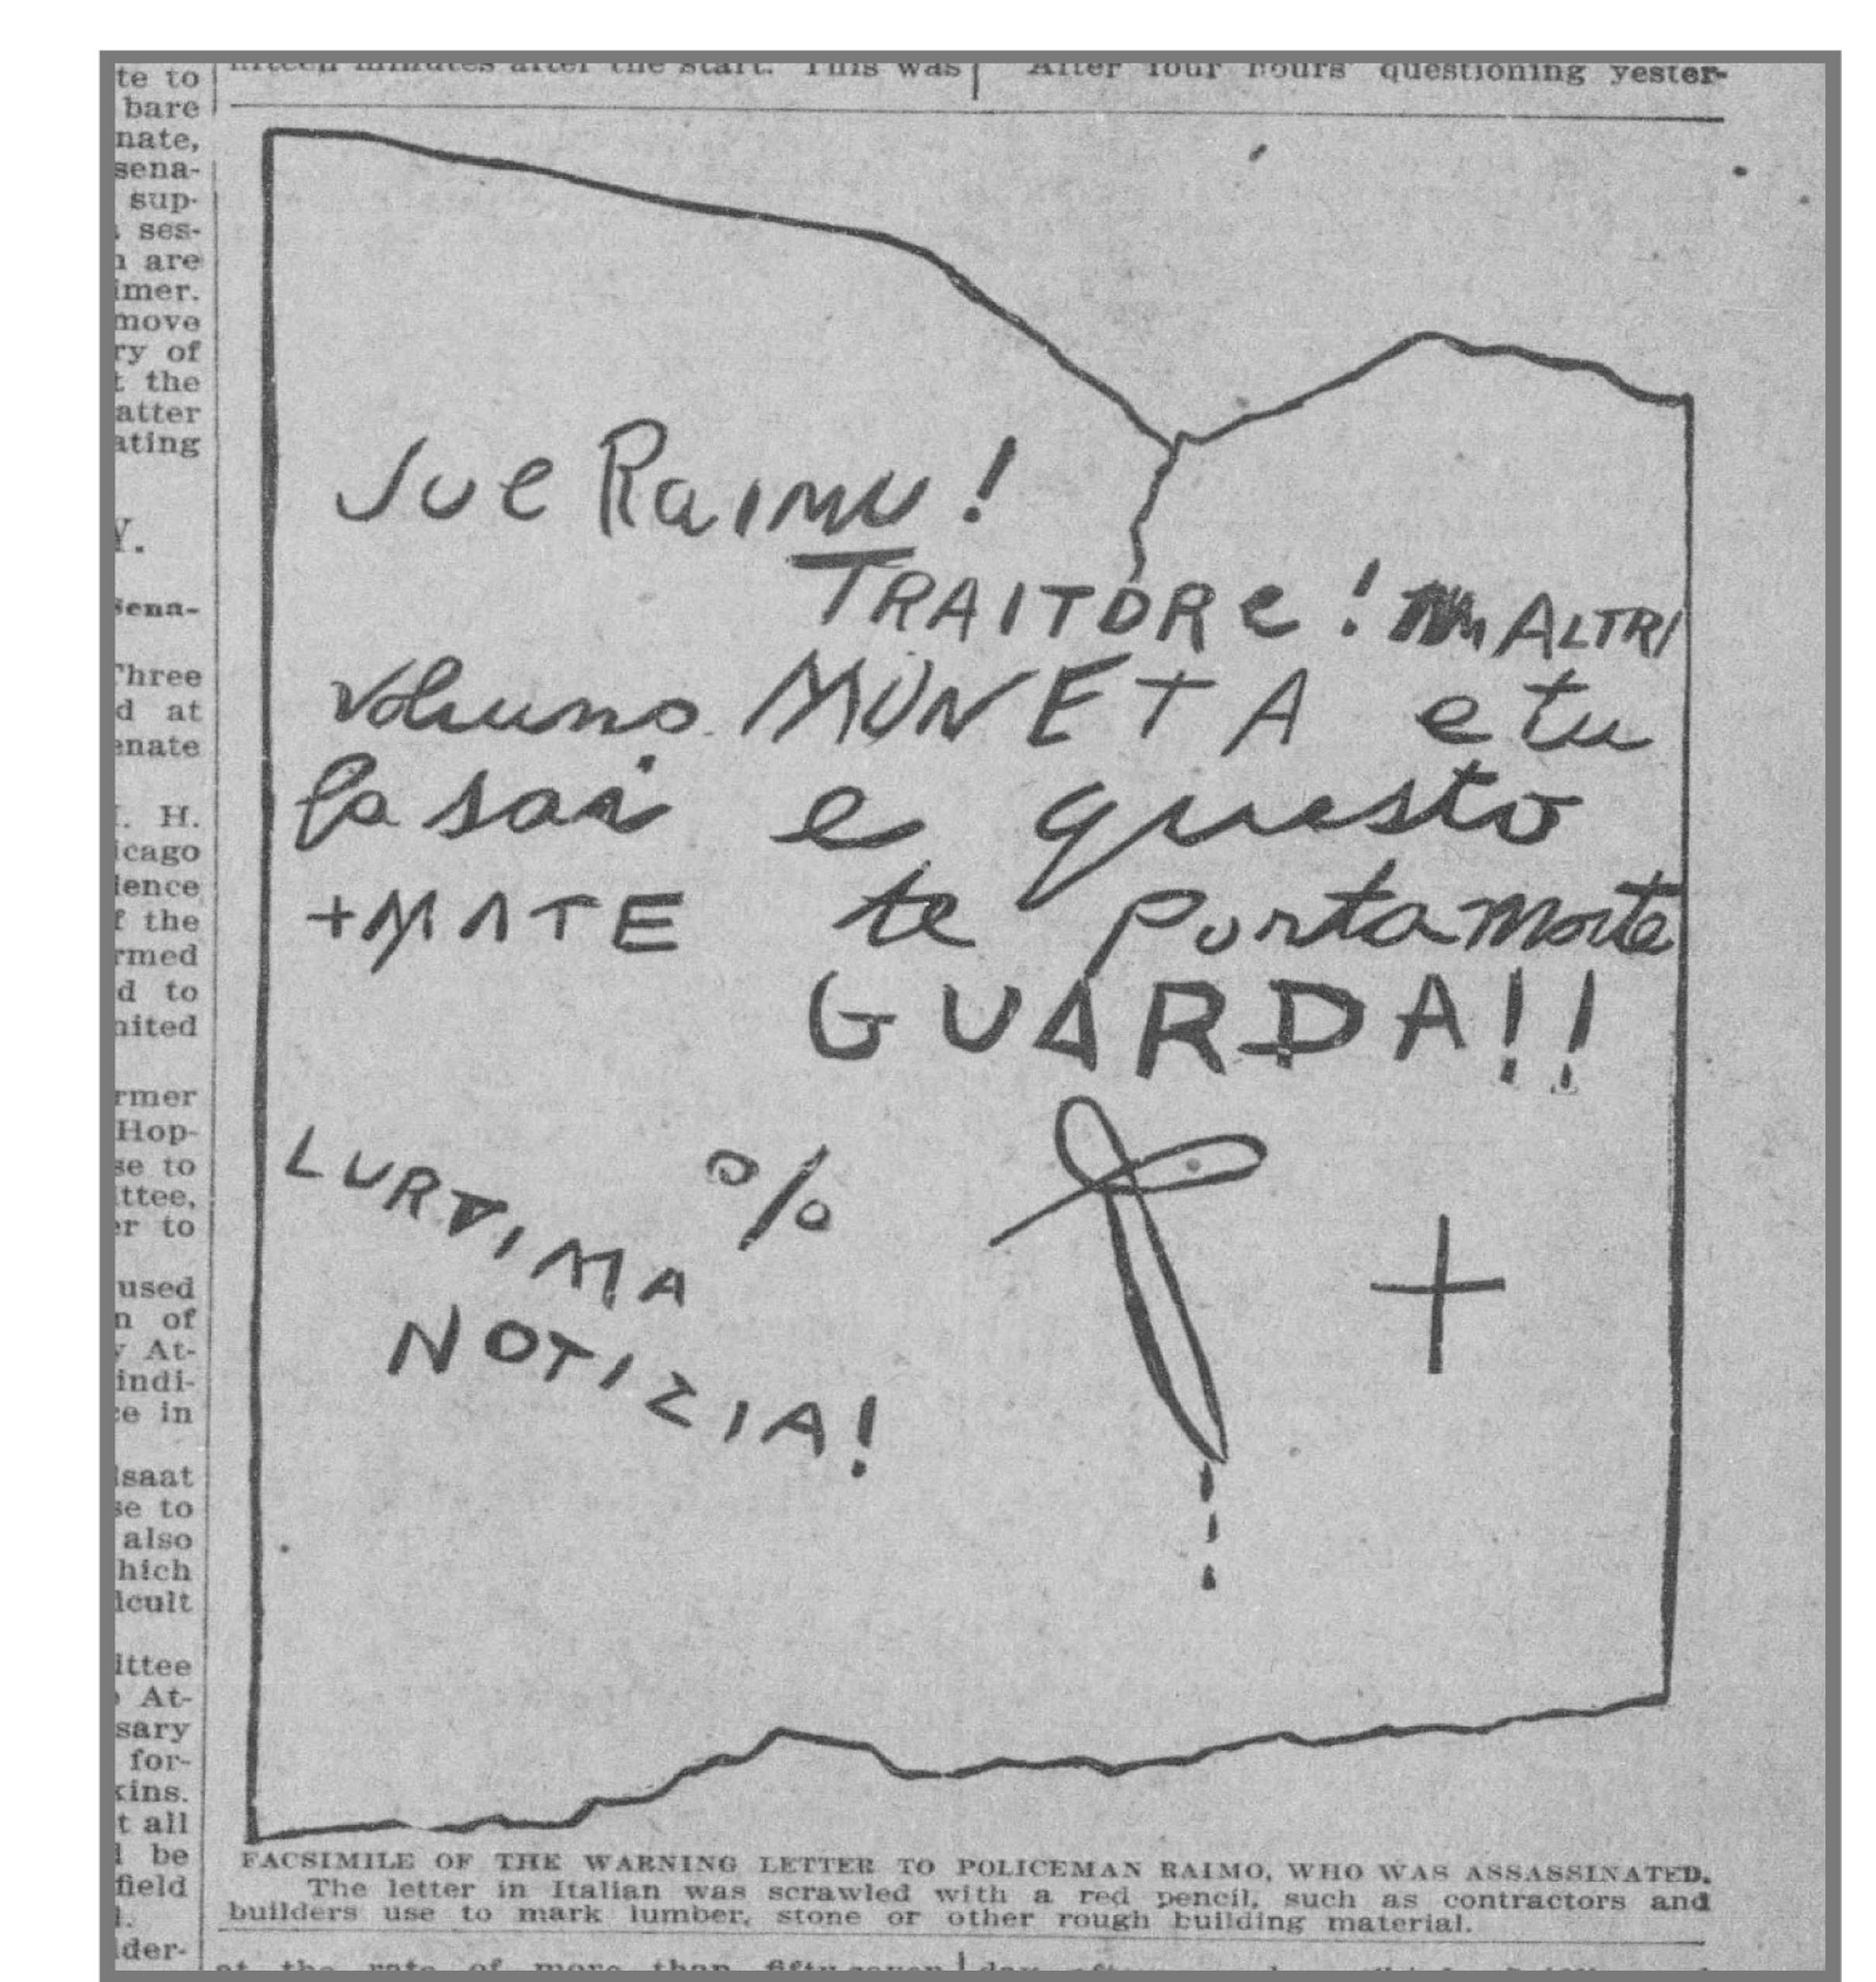 te to
bare
nate,
sena-
sup-
ses-
are
imer.
move
ry of
the
atter
ating
Y.
Sena-
Three
d at
enate
. H.
icago
dence
f the
rmed
d to
nited
rmer
Hop-
se to
ittee,
er to
used
n of
At-
indi-
ce in
lsaat
se to
also
hich
icult
ittee
At-
sary
for-
kins.
t all
be
field
der-
fifteen minutes after the start. This was
After four hours questioning yester-
Jue Raimu!
TRAITORe! ALTRI
voluno MUNETA e tu
la sai e questo
+MATE te porta morte
GUARDA!!
LURTIMA %
NOTIZIA!
+
FACSIMILE OF THE WARNING LETTER TO POLICEMAN RAIMO, WHO WAS ASSASSINATED.
The letter in Italian was scrawled with a red pencil, such as contractors and
builders use to mark lumber, stone or other rough building material.
at the rate of more than fifty-seven